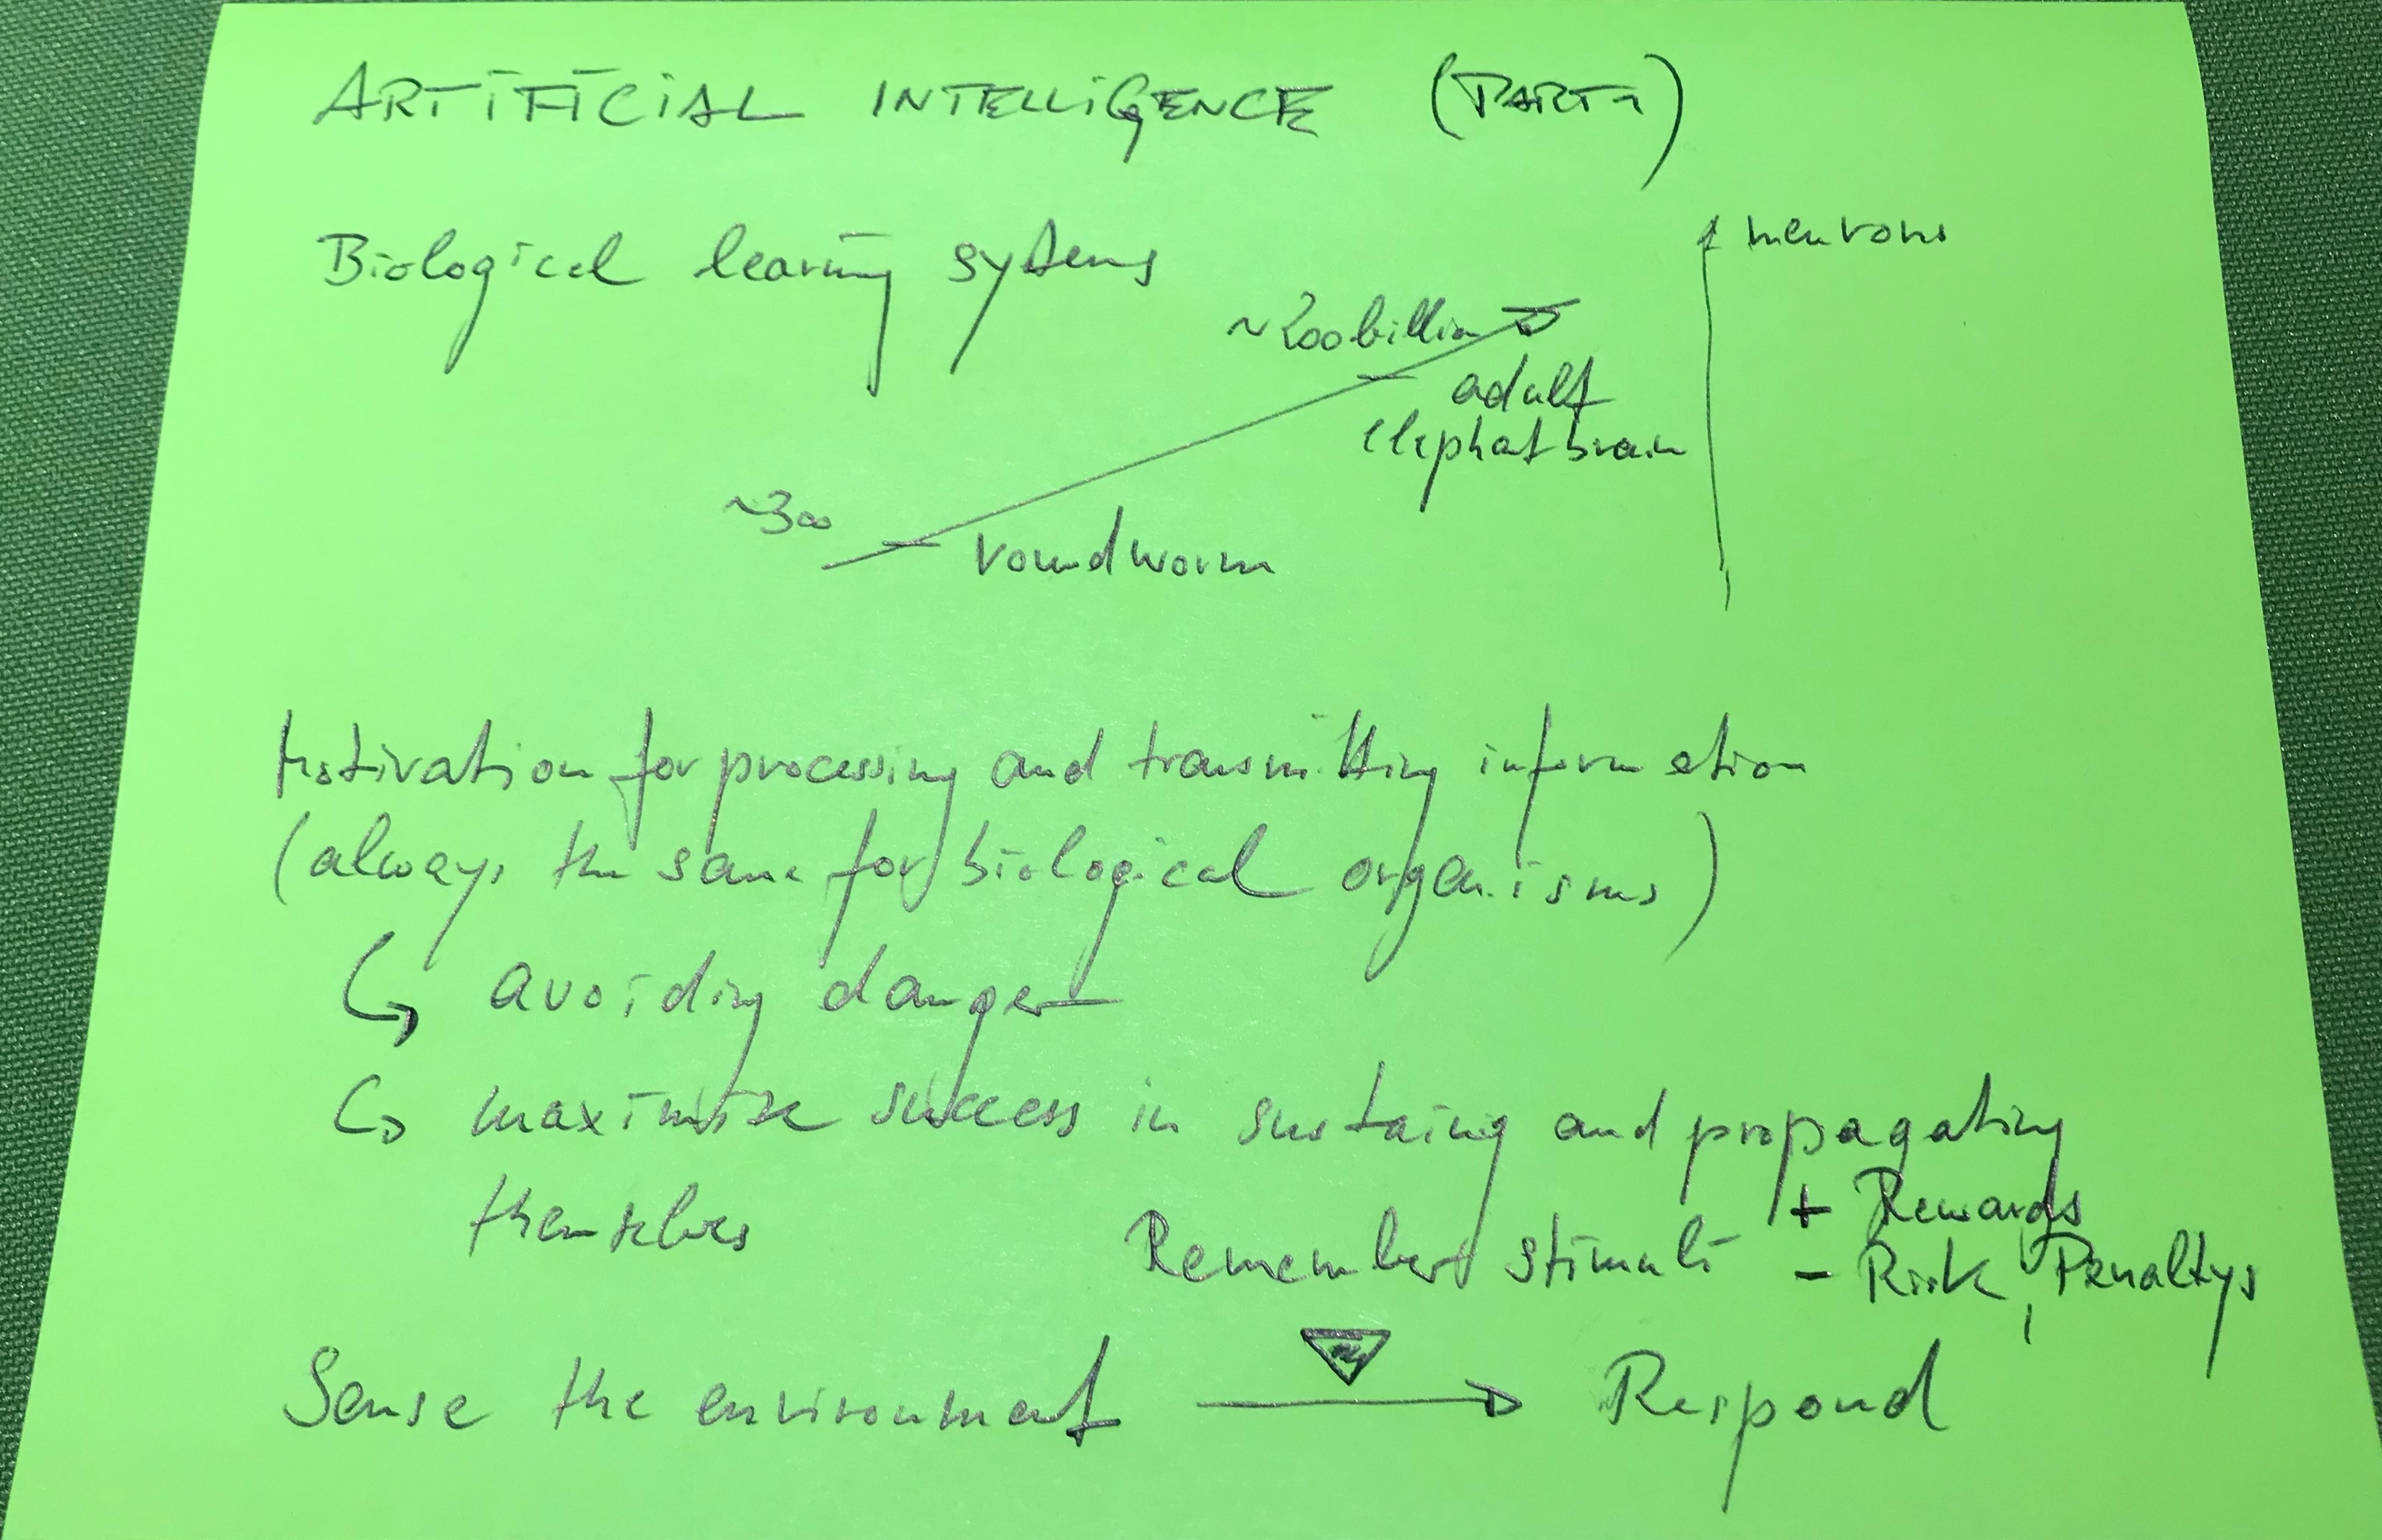 ARTIFICIAL INTELLIGENCE (PART 1)
Biological learning systems
neurons
~200 billion
adult
elephat brain
~300
roundworm
Motivation for processing and transmitting information
(always the same for biological organisms)
avoiding danger
maximize success in sustaing and propagating
themselves
+ Rewards
Remember stimuli - Risk, Penaltys
Sense the environment Respond